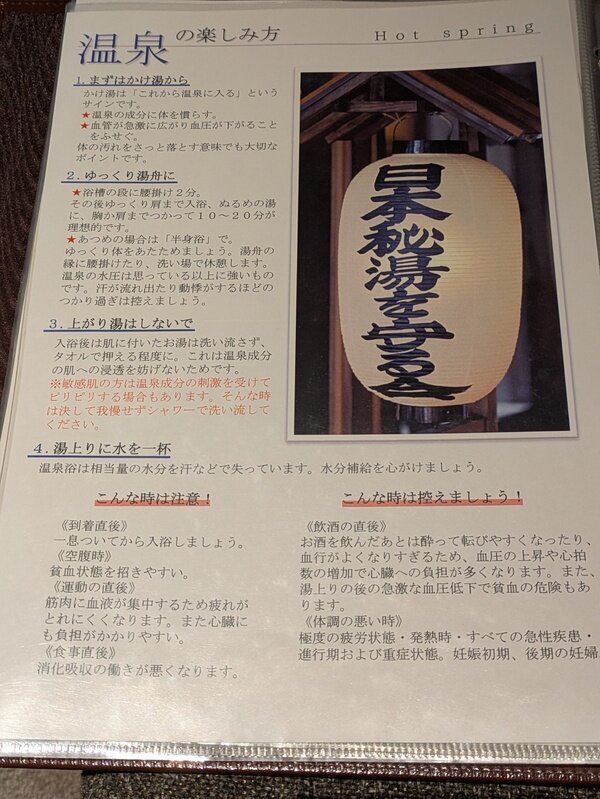 温泉の楽しみ方
Hot spring
1.まずはかけ湯から
かけ湯は「これから温泉に入る」という
サインです。
★温泉の成分に体を慣らす。
★血管が急激に広がり血圧が下がること
をふせぐ。
体の汚れをさっと落とす意味でも大切な
ポイントです。
2.ゆっくり湯舟に
★浴槽の段に腰掛け2分。
その後ゆっくり肩まで入浴、ぬるめの湯
に、胸か肩までつかって10〜20分が
理想的です。
★あつめの場合は「半身浴」で。
ゆっくり体をあたためましょう。湯舟の
縁に腰掛けたり、洗い場で休憩します。
温泉の水圧は思っている以上に強いもの
です。汗が流れ出たり動悸がするほどの
つかり過ぎは控えましょう。
3.上がり湯はしないで
入浴後は肌に付いたお湯は洗い流さず、
タオルで押える程度に。これは温泉成分
の肌への浸透を妨げないためです。
※敏感肌の方は温泉成分の刺激を受けて
ピリピリする場合もあります。そんな時
は決して我慢せずシャワーで洗い流して
ください。
日本秘湯を守る会
4.湯上りに水を一杯
温泉浴は相当量の水分を汗などで失っています。水分補給を心がけましょう。
こんな時は注意！
《到着直後》
一息ついてから入浴しましょう。
《空腹時》
貧血状態を招きやすい。
《運動の直後》
筋肉に血液が集中するため疲れが
とれにくくなります。また心臓に
も負担がかかりやすい。
《食事直後》
消化吸収の働きが悪くなります。
こんな時は控えましょう！
《飲酒の直後》
お酒を飲んだあとは酔って転びやすくなったり、
血行がよくなりすぎるため、血圧の上昇や心拍
数の増加で心臓への負担が多くなります。また、
湯上りの後の急激な血圧低下で貧血の危険もあ
ります。
《体調の悪い時》
極度の疲労状態・発熱時・すべての急性疾患・
進行期および重症状態。妊娠初期、後期の妊婦